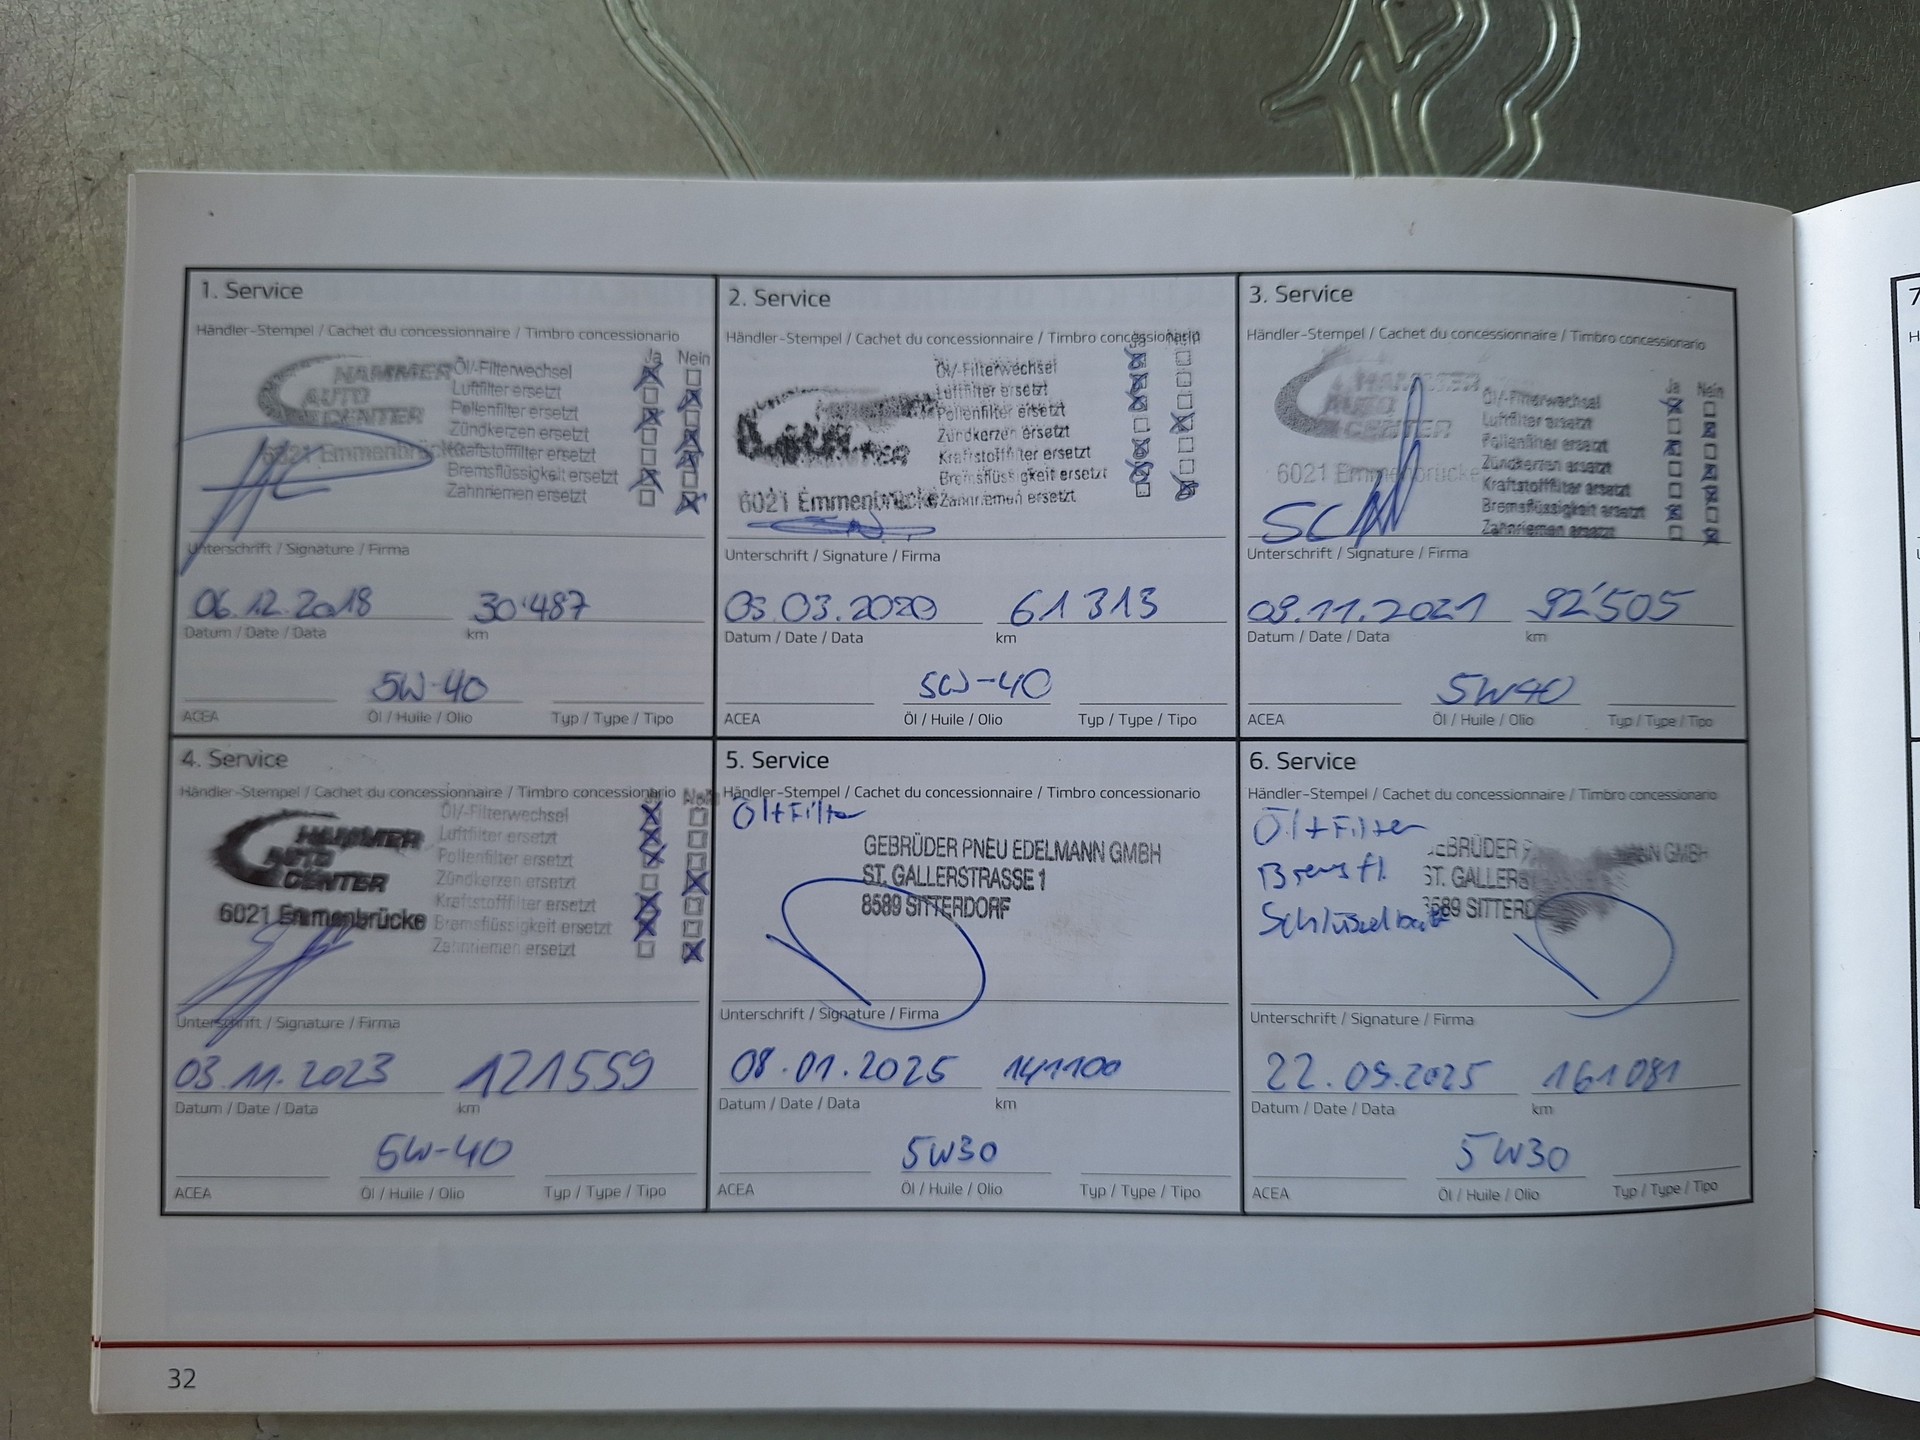 1. Service
Händler-Stempel / Cachet du concessionnaire / Timbro concessionario
HAMMER
AUTO
CENTER
6021 Emmenbrücke
Ja Nein
Öl-/Filterwechsel
Luftfilter ersetzt
Pollenfilter ersetzt
Zündkerzen ersetzt
Kraftstofffilter ersetzt
Bremsflüssigkeit ersetzt
Zahnriemen ersetzt
Unterschrift / Signature / Firma
06.12.2018 30'487
Datum / Date / Data km
5W-40
ACEA Öl / Huile / Olio Typ / Type / Tipo
2. Service
Händler-Stempel / Cachet du concessionnaire / Timbro concessionario
6021 Emmenbrücke
Öl-/Filterwechsel
Luftfilter ersetzt
Pollenfilter ersetzt
Zündkerzen ersetzt
Kraftstofffilter ersetzt
Bremsflüssigkeit ersetzt
Zahnriemen ersetzt
Unterschrift / Signature / Firma
61313
Datum / Date / Data km
5W-40
ACEA Öl / Huile / Olio Typ / Type / Tipo
3. Service
Händler-Stempel / Cachet du concessionnaire / Timbro concessionario
HAMMER
AUTO
CENTER
6021 Emmenbrücke
Ja Nein
Öl-/Filterwechsel
Luftfilter ersetzt
Pollenfilter ersetzt
Zündkerzen ersetzt
Kraftstofffilter ersetzt
Bremsflüssigkeit ersetzt
Zahnriemen ersetzt
Unterschrift / Signature / Firma
92'505
Datum / Date / Data km
5W40
ACEA Öl / Huile / Olio Typ / Type / Tipo
4. Service
Händler-Stempel / Cachet du concessionnaire / Timbro concessionario
HAMMER
AUTO
CENTER
6021 Emmenbrücke
Nein
Öl-/Filterwechsel
Luftfilter ersetzt
Pollenfilter ersetzt
Zündkerzen ersetzt
Kraftstofffilter ersetzt
Bremsflüssigkeit ersetzt
Zahnriemen ersetzt
Unterschrift / Signature / Firma
03.11.2023 121559
Datum / Date / Data km
5W-40
ACEA Öl / Huile / Olio Typ / Type / Tipo
5. Service
Händler-Stempel / Cachet du concessionnaire / Timbro concessionario
Öl+Filter
GEBRÜDER PNEU EDELMANN GMBH
ST. GALLERSTRASSE 1
8589 SITTERDORF
Unterschrift / Signature / Firma
08.01.2025 141100
Datum / Date / Data km
5W30
ACEA Öl / Huile / Olio Typ / Type / Tipo
6. Service
Händler-Stempel / Cachet du concessionnaire / Timbro concessionario
Öl+Filter
Bremsfl.
GEBRÜDER GMBH
ST.
Unterschrift / Signature / Firma
22.09.2025 161081
Datum / Date / Data km
5W30
ACEA Öl / Huile / Olio Typ / Type / Tipo
32
7